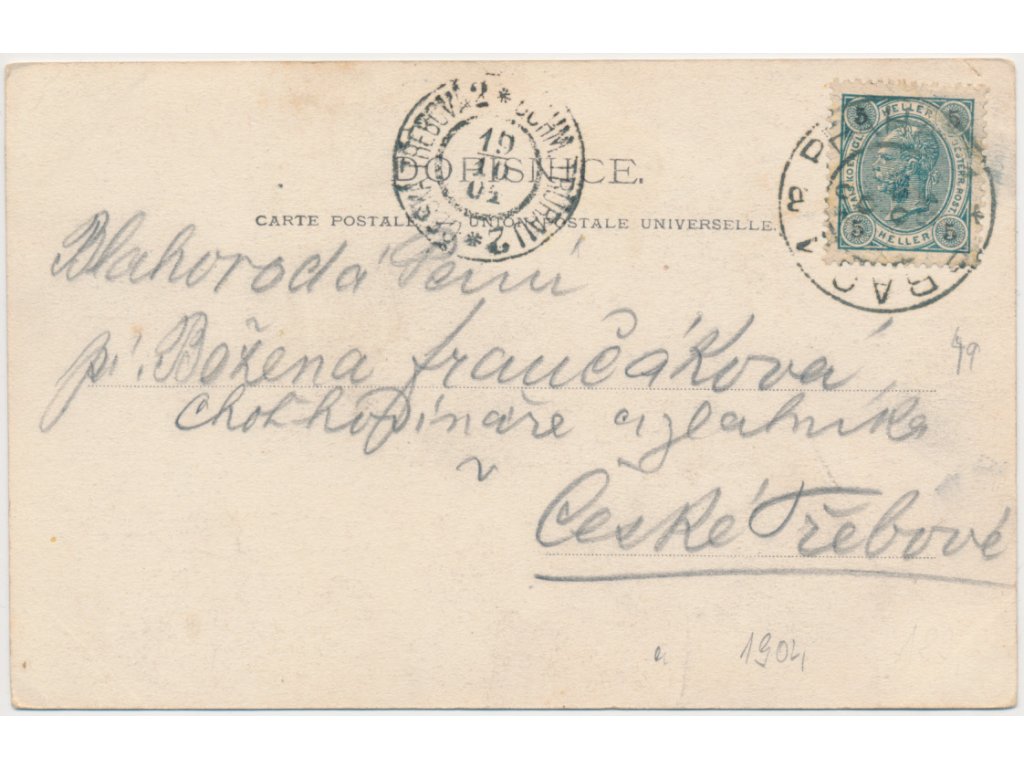 ČESKÁ TŘEBOVÁ 2 * BÖHM. TRÜBAU 2 *
19
10
04
5 HELLER 5
5 HELLER 5
DOPISNICE.
CARTE POSTALE UNION POSTALE UNIVERSELLE.
Blahorodá Paní
pí. Božena Frančáková
choť hodináře a zlatníka
v
České Třebové
49
1904